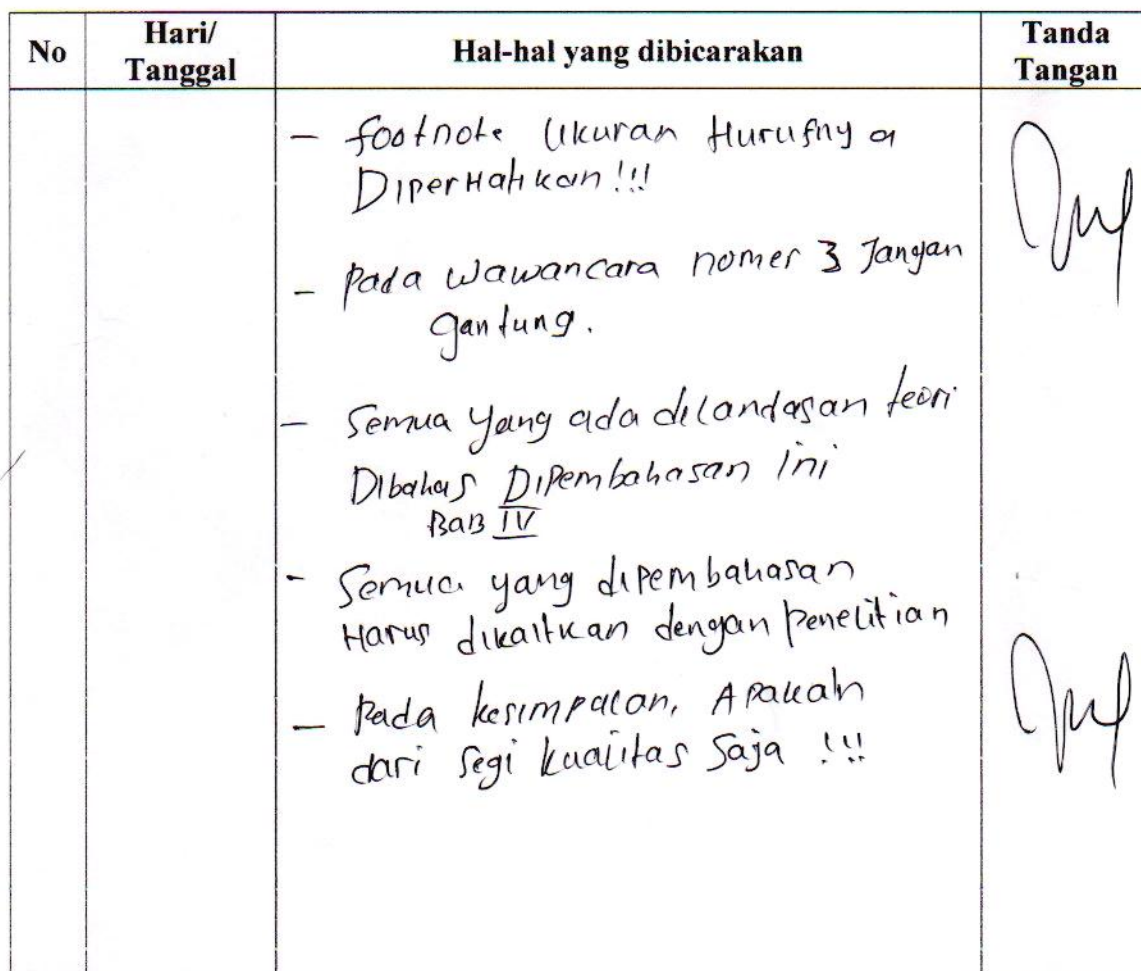 No
Hari/
Tanggal
Hal-hal yang dibicarakan
Tanda
Tangan
- footnote Ukuran Hurufnya
Diperhatikan!!!
- Pada wawancara nomer 3 Jangan
gantung.
- Semua yang ada dilandasan teori
Dibahas Dipembahasan ini
BAB IV
- Semua yang dipembahasan
Harus dikaitkan dengan penelitian
- Pada kesimpulan, Apakah
dari segi kualitas saja !!!